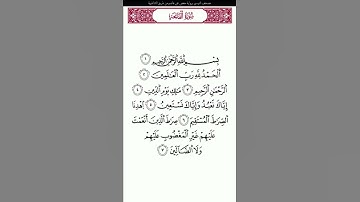 سُورَةُ ٱلْفَاتِحَةِ
بِسْمِ ٱللَّهِ ٱلرَّحْمَٰنِ ٱلرَّحِيمِ ١
ٱلْحَمْدُ لِلَّهِ رَبِّ ٱلْعَٰلَمِينَ ٢
ٱلرَّحْمَٰنِ ٱلرَّحِيمِ ٣ مَٰلِكِ يَوْمِ ٱلدِّينِ ٤
إِيَّاكَ نَعْبُدُ وَإِيَّاكَ نَسْتَعِينُ ٥ ٱهْدِنَا
ٱلصِّرَٰطَ ٱلْمُسْتَقِيمَ ٦ صِرَٰطَ ٱلَّذِينَ أَنْعَمْتَ
عَلَيْهِمْ غَيْرِ ٱلْمَغْضُوبِ عَلَيْهِمْ
وَلَا ٱلضَّآلِّينَ ٧